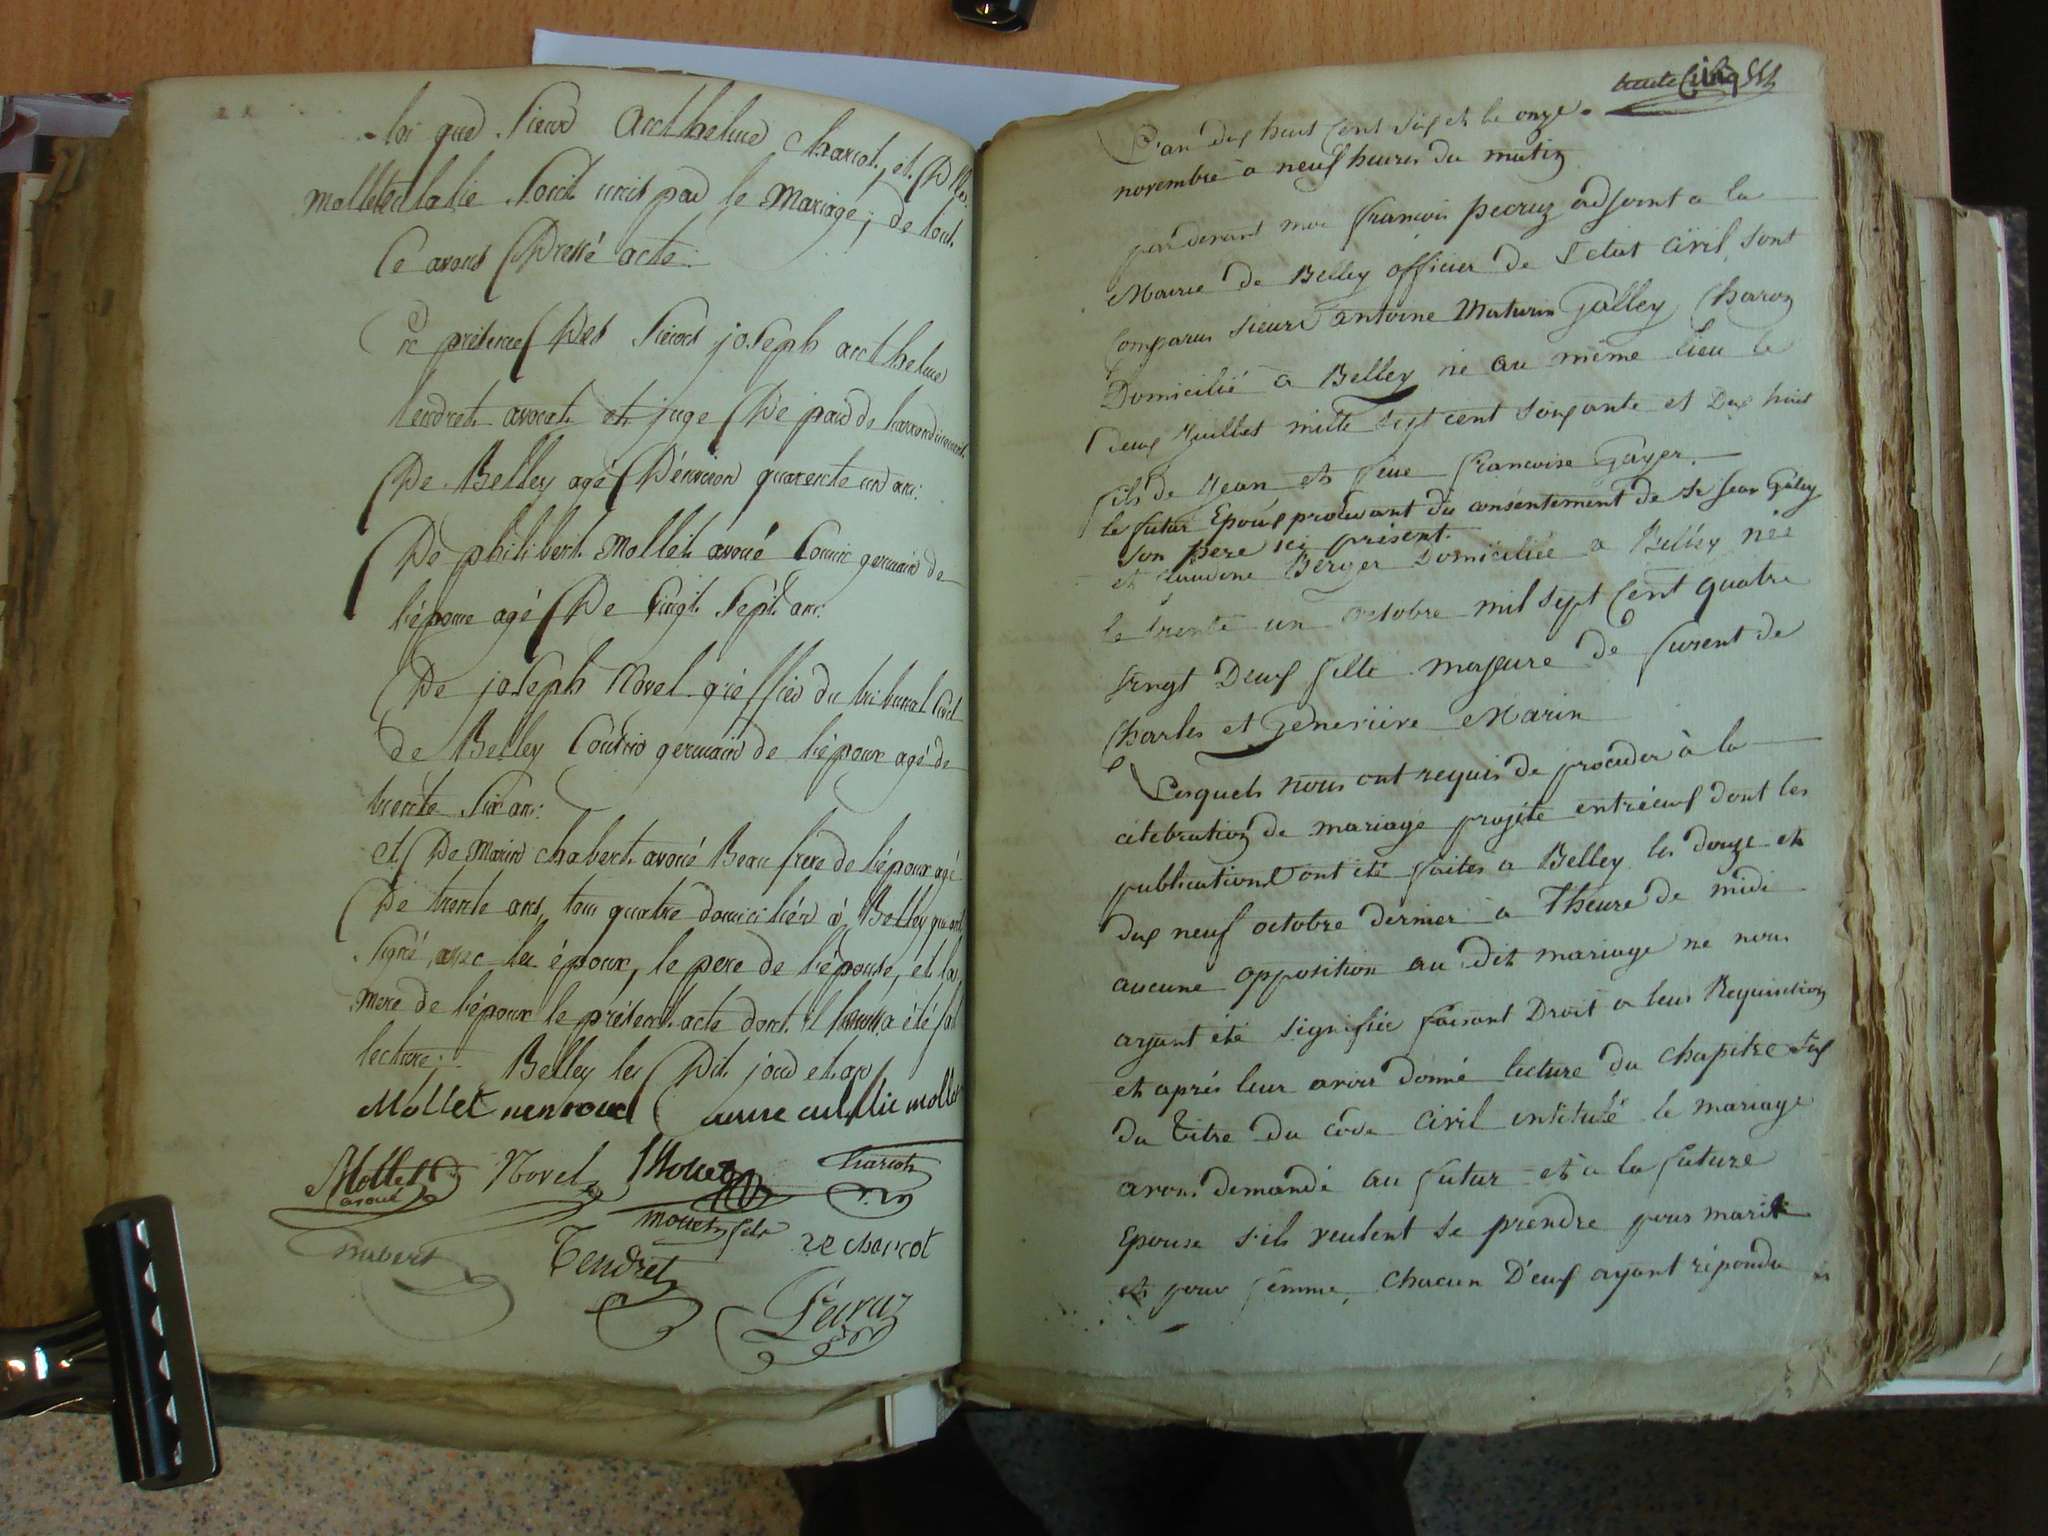 loi que Sieur Anthelme Charcot, et Dlle
Mollet Eulalie sont unis par le Mariage; de tout
ce avons Dressé acte.
En présence Des Sieurs joseph anthelme
tendret avocat et juge De paix de l'arrondissement
De Belley agé D'environ quarente un ans:
De philibert Mollet avoué Cousin germain de
l'épouse agé De vingt Sept ans:
De joseph Novel gréffier du tribunal Civil
de Belley Cousin germain de l'époux agé de
trente Six ans:
et De Marin Chabert avoué Beau frere de l'époux agé
De trente ans, tous quatre domiciliés à Belley qui ont
Signé, avec les époux, le pere de l'épouse, et la
mere de l'époux le présent acte dont il leur a été fait
lecture; Belley les Dit jour et an
Mollet eulalie mollet
Mollet avoué Novel Mollet Charcot
mollet fils
Chabert Tendret ve charcot
Pecruz
trente Cinq
L'an dix huit cent dix et le onze
novembre à neuf heures du matin
par devant moi françois pecruz adjoint a la
Mairie de Belley officier de l'etat civil, sont
Comparus sieurs antoine Maturin Galley Charon
Domicilié a Belley né au même lieu le
deux Juillet mille sept cent soixante et Dix huit
fils de Jean et feue francoise Gayer.
le futur Epoux procédant du consentement de Sr jean Galley
son pere ici présent.
et claudine Berger Domiciliée a Belley née
le trente un octobre mil sept cent quatre
vingt Deux fille majeure de furent de
Charles et Genevieve Marin
Lesquels nous ont requis de proceder à la
célébration de mariage projeté entr'eux dont les
publications ont été faites a Belley les douze et
dix neuf octobre dernier a l'heure de midi
aucune opposition au dit mariage ne nous
ayant été signifiée faisant Droit a leur Requisition
et après leur avoir donné lecture du chapitre six
du titre du code civil intitulé le mariage
avons demandé au futur et a la future
Epouse s'ils veulent se prendre pour mari
et pour femme, chacun D'eux ayant répondu